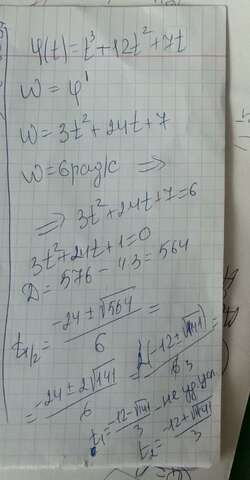 φ(t)=t³+12t²+7t
ω = φ'
ω = 3t²+24t+7
ω=6рад/с ⇒
⇒ 3t²+24t+7=6
3t²+24t+1=0
D = 576 - 4·3 = 564
t₁/₂ = (-24 ± √564)/6 =
= (-24 ± 2√141)/6 = 2(-12 ± √141)/6 3 =
t₁ = (-12-√141)/3 - не уд усл
t₂ = (-12+√141)/3